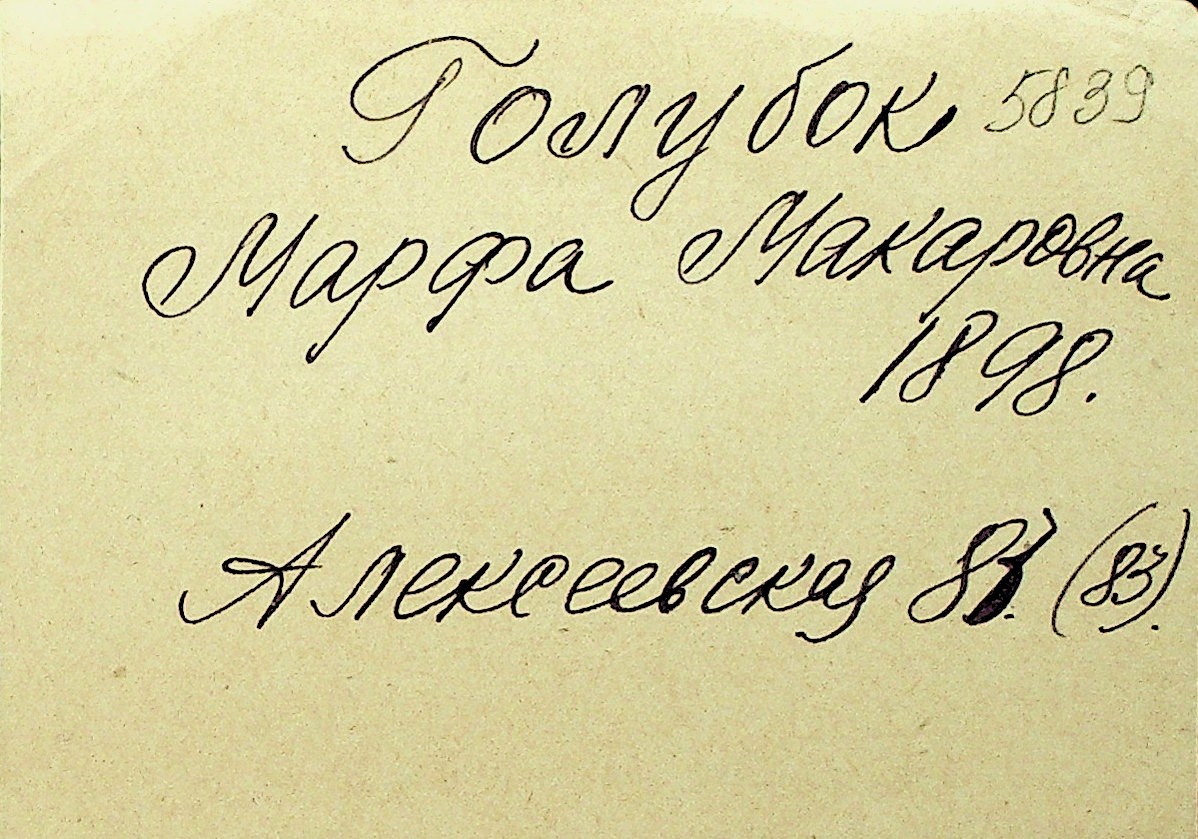 Голубок 5839
Марфа Макаровна
1898.
Алексеевская 83. (83).